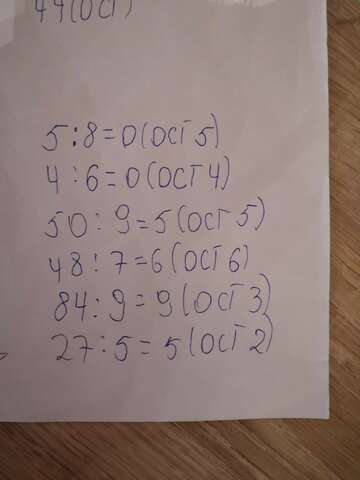 44(ОСТ)
5:8=0(ОСТ 5)
4:6=0(ОСТ 4)
50:9=5(ОСТ 5)
48:7=6(ОСТ 6)
84:9=9(ОСТ 3)
27:5=5(ОСТ 2)